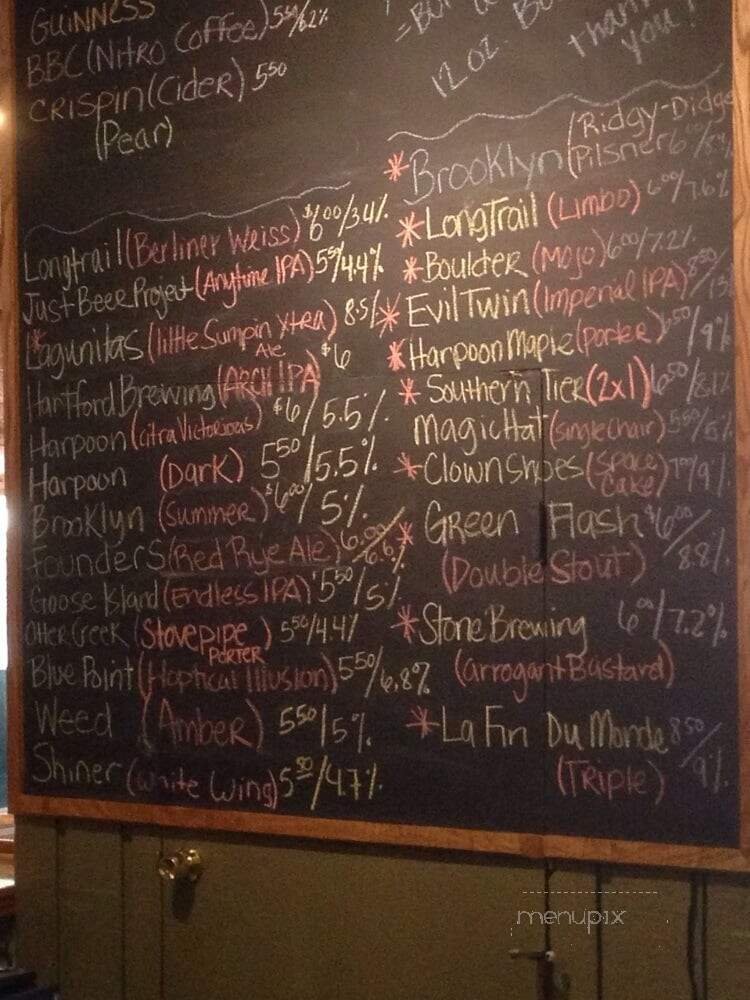 GUINNESS
BBC (Nitro Coffee) 5.50/6.2%
CRISPIN (Cider) 5.50
(Pear)
12 oz.
thank
you!
Longtrail (Berliner Weiss) $6.00/3.4%
Just Beer Project (Anytime IPA) 5.50/4.4%
*Lagunitas (little Sumpin Xtra) 8.5%
Ale $6
Hartford Brewing (ARCH IPA)
Harpoon (Citra Victorious) $6/5.5%
Harpoon (Dark) 5.50/5.5%
Brooklyn (Summer) $6.00/5%
Founders (Red Rye Ale) 6.00/6.6%
Goose Island (Endless IPA) 5.50/5%
Otter Creek (Stovepipe) 5.50/4.4%
PORTER
Blue Point (Hoptical Illusion) 5.50/6.8%
Weed (Amber) 5.50/5%
Shiner (White Wing) 5.50/4.7%
(Ridgy-Didge
*Brooklyn Pilsner 6.00
*LongTrail (Limbo) 6.00/7.6%
*Boulder (Mojo) 6.00/7.2%
*Evil Twin (Imperial IPA) 8.50
*Harpoon Maple (porter) 6.50/9%
*Southern Tier (2x1) 6.00/8.1%
Magic Hat (single chair) 5.50/5%
*Clown Shoes (Space 7.00/9%
Cake)
*Green Flash $6.00/8.8%
(Double Stout)
*Stone Brewing 6.00/7.2%
(arrogant Bastard)
*La Fin Du Monde 8.50/9%
(Triple)
menupix